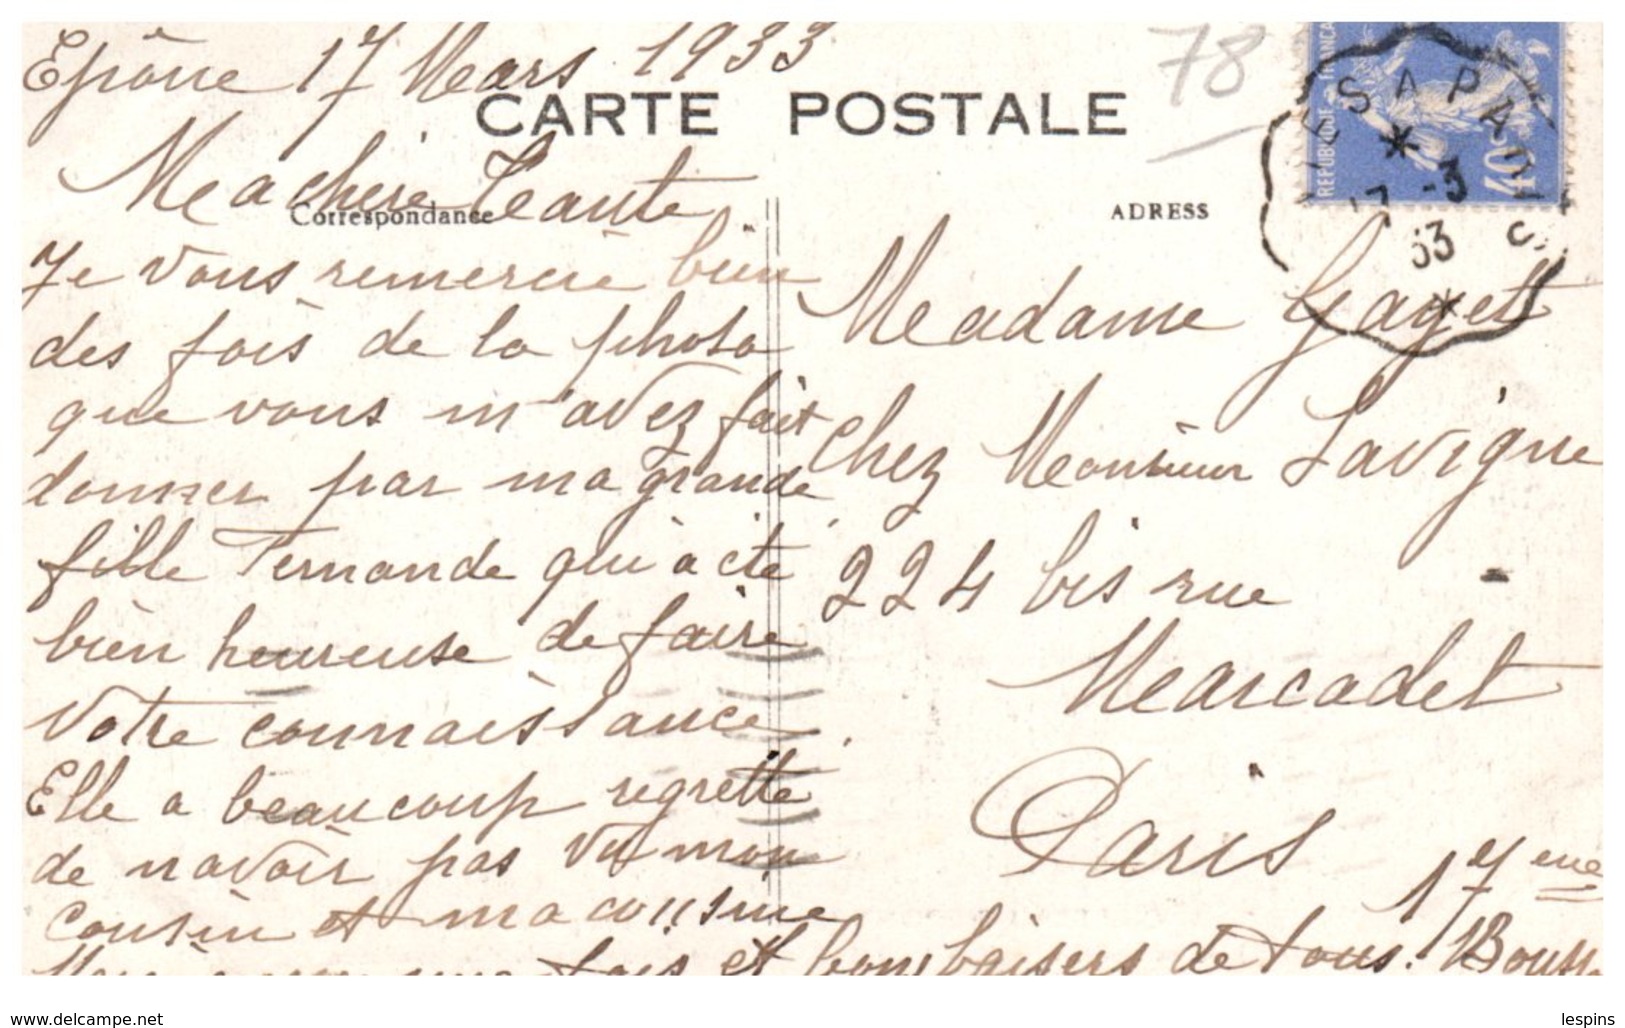 Epône 17 Mars 1933
78
CARTE POSTALE
Correspondance
ADRESS
REPUBLIQUE FRANÇAI
40c
ES A PARIS
17 -3
33
Ma chère Tante
Je vous remercie bien
des fois de la photo
que vous m'avez fait
donner par ma grande
fille Fernande qui a été
bien heureuse de faire
votre connaissance.
Elle a beaucoup regretté
de navoir pas vu mon
cousin et ma cousine
une fois et bons baisers de tous.
Madame Gaget
chez Monsieur Lavigne
224 bis rue
Marcadet
Paris
17eme
www.delcampe.net
lespins